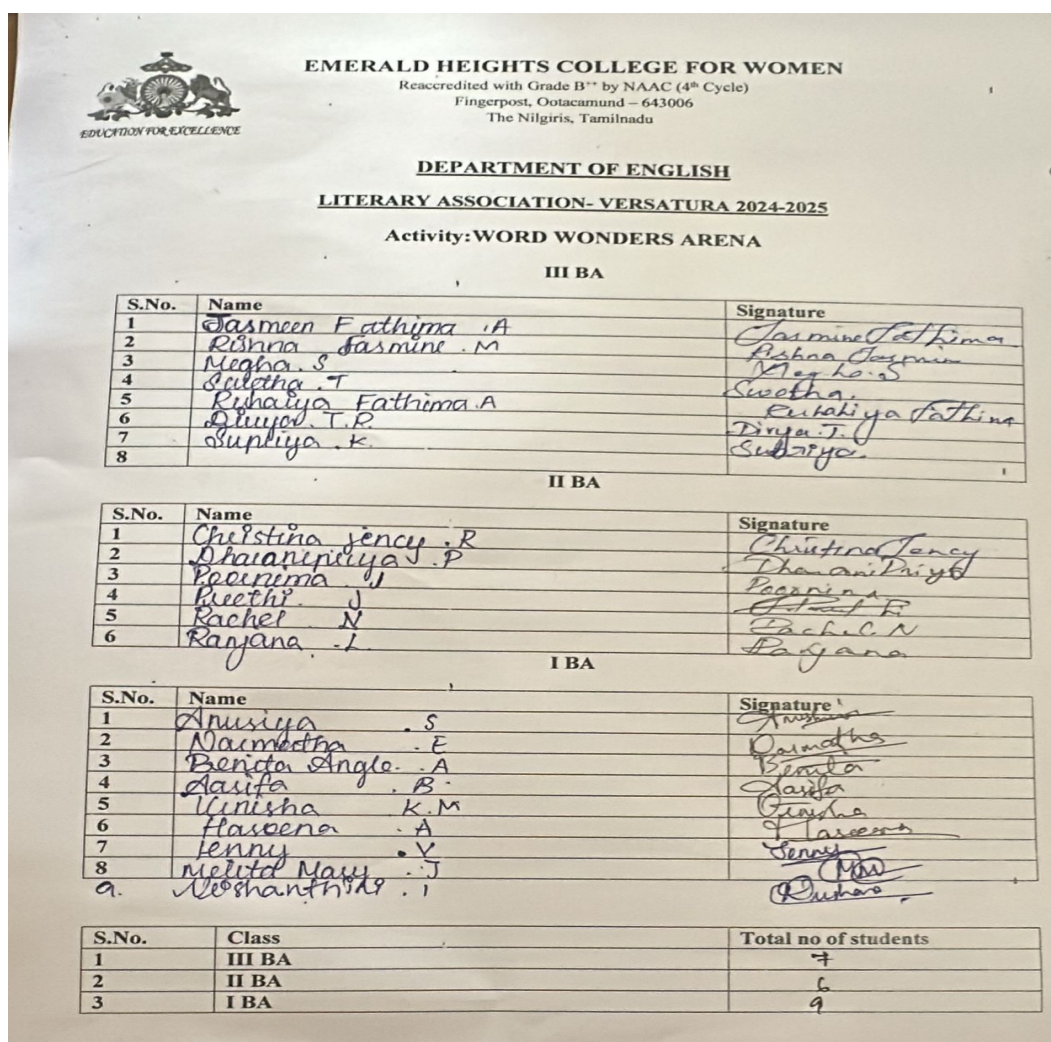 EMERALD HEIGHTS COLLEGE FOR WOMEN
Reaccredited with Grade B++ by NAAC (4th Cycle)
Fingerpost, Ootacamund – 643006
The Nilgiris, Tamilnadu
EDUCATION FOR EXCELLENCE
DEPARTMENT OF ENGLISH
LITERARY ASSOCIATION- VERSATURA 2024-2025
Activity:WORD WONDERS ARENA
III BA
S.No. Name Signature
1 Jasmeen Fathima .A Jasmine Fathima
2 Rishna Jasmine .M Rishna Jasmin
3 Megha. S Megha.S
4 Swetha .T Swetha.
5 Ruhaiya Fathima.A Ruhahiya Fathima
6 Divya. T.R Divya T.
7 Supriya .K Subriya.
8
II BA
S.No. Name Signature
1 Christina Jency .R Christina Jency
2 Dharanipriya .P DharaniPriya
3 Poornima J Poornima
4 Preethi. J
5 Rachel N Rachel N
6 Ranjana .L Ranjana
I BA
S.No. Name Signature
1 Anusiya .S
2 Narmeetha .E Narmatha
3 Benita Angle. .A Benita
4 Aasifa .B. Aasifa
5 K.M
6 Haseena .A Haseena
7 Jenny .V Jenny
8 Melita Mary .J
9.
S.No. Class Total no of students
1 III BA 7
2 II BA 6
3 I BA 9